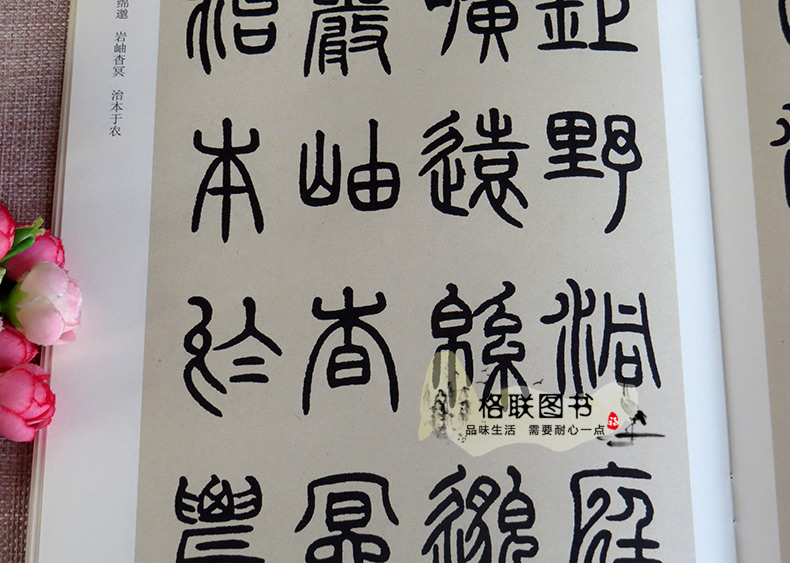 鉅野洞庭
曠遠緜邈
巖岫杳冥
治本於農
绵邈 岩岫杳冥 治本于农
格联图书
品味生活 需要耐心一点